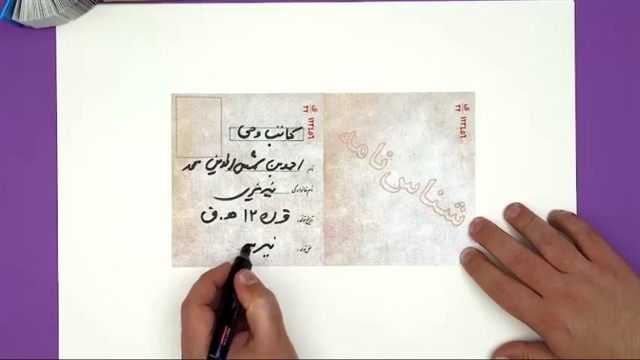 کاتب وحی
نام: احمدبن شمس الدین محمد
نام خانوادگی: نیریزی
تاریخ تولد: قرن ۱۲ ه.ق
محل تولد: نیر
شناس نامه